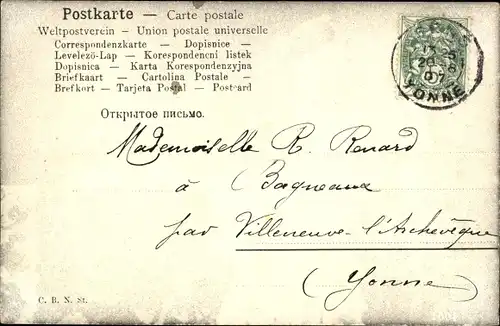 Postkarte — Carte postale
Weltpostverein — Union postale universelle
Correspondenzkarte — Dopisnice —
Levelező-Lap — Korespondencni listek
Dopisnica — Karta Korespondenzyjna
Briefkaart — Cartolina Postale —
Brefkort — Tarjeta Postal — Postcard
Открытое письмо.
YONNE
Mademoiselle R. Renard
à
Bagneaux
par Villeneuve-l'Archevêque
(Yonne)
C. B. N. St.